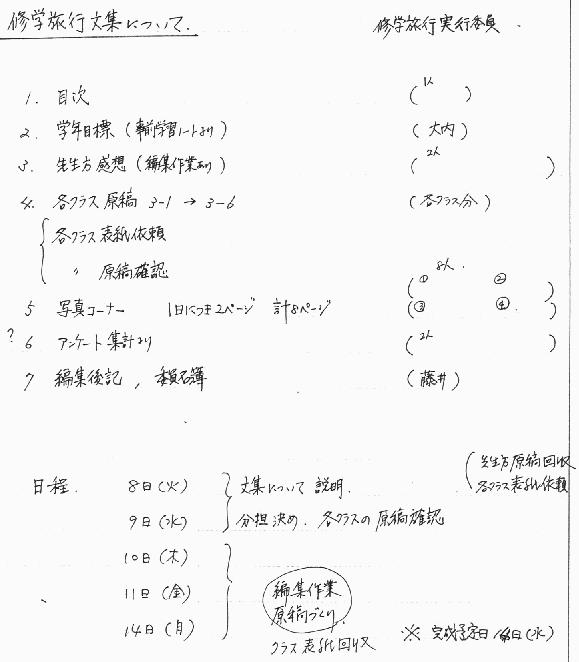 修学旅行文集について.
修学旅行実行委員.
1. 目次 (1人)
2. 学年目標 (事前学習ノートより) (大内)
3. 先生方感想 (編集作業あり) (2人 )
4. 各クラス原稿 3-1 → 3-6 (各クラス分)
各クラス表紙依頼
〃 原稿確認
8人.
(① ② )
5 写真コーナー 1日につき2ページ 計8ページ (③ ④. )
? 6 アンケート集計より (2人 )
7 編集後記, 委員名簿 (藤井)
(先生方原稿回収
日程. 8日(火) 文集について説明. 各クラス表紙依頼
9日(水) 分担決め. 各クラスの原稿確認
10日(木)
11日(金) 編集作業
原稿づくり.
14日(月)
クラス表紙回収 ※ 完成予定日 16日(水)